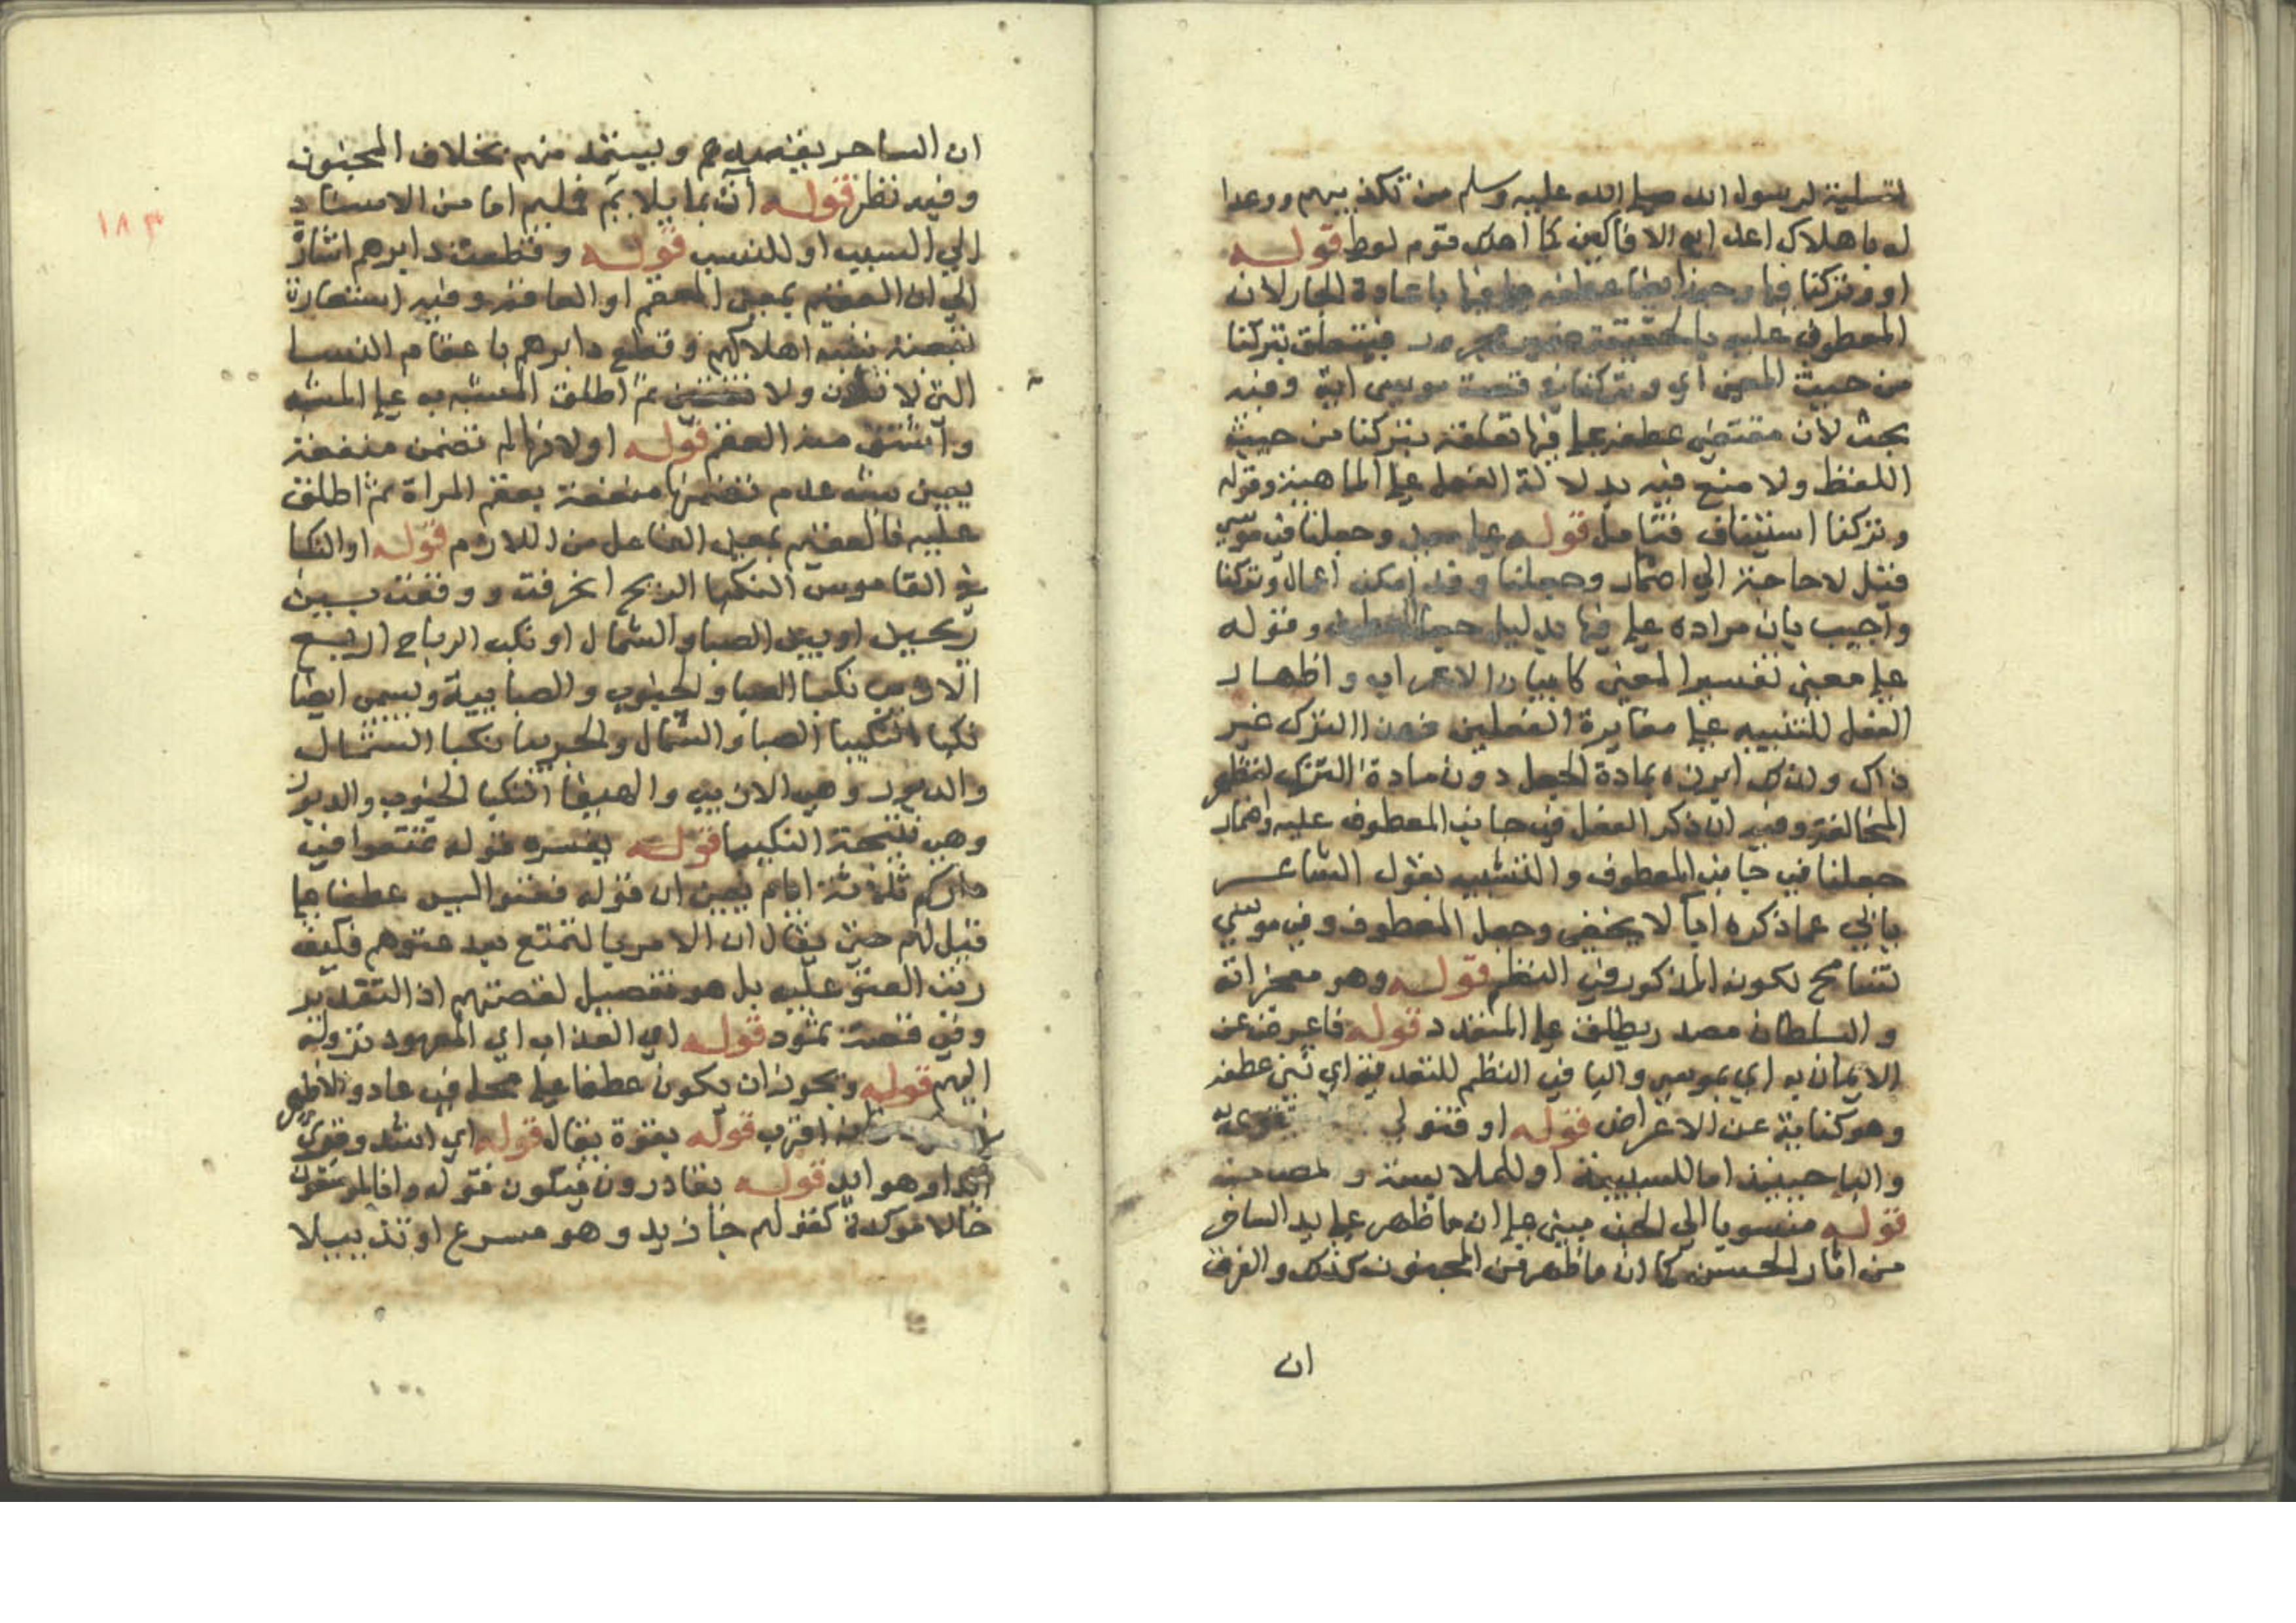 لتسلية لرسول الله صلى الله عليه وسلم من تكذيبهم ووعدا
له باهلاك اعدايه الافاكين كما اهلك قوم لوط قوله
او وتركنا فيها وحينئذ عطفه على فيها باعادة الجار لان
المعطوف عليه بالحقيقة ضمير مجرور فيتعلق بتركنا
من حيث المعنى اي وتركنا في قصة موسى اية وفيه
بحث لان مقتضى عطفه على فيها تعلقه بتركنا من حيث
اللفظ ولا منع فيه بدلالة الفعل على الماهية وقوله
وتركنا استيناف فتامل قوله على معنى وجعلنا في موسى
قيل لا حاجة الى اضمار وجعلنا وقد امكن اعمال وتركنا
واجيب بان مراده على فيها بدليل وقوله
على معنى تفسير المعنى كا لبيان الاعراب واظهار
الفعل للتنبيه على مغايرة الفعلين فهذا الترك غير
ذاك ولذلك ابرزه بمادة الجعل دون مادة الترك لتظهر
المخالفة وفيه ان ذكر الفعل في جانب المعطوف عليه واضمار
جعلنا في جانب المعطوف والتشبيه بقول الشاعر
يابى عما ذكره ابا لا يخفى وجعل المعطوف وفي موسى
تسامح لكونه المذكور في النظم قوله وهو معجزاته
والسلطان مصدر يطلق على المتعدد قوله فاعرض عن
الايمان به اي بموسى والبا في النظم للتعدية اي ثنى عطفه
وهو كناية عن الاعراض قوله او فتولى تقوى به
والبا حينئذ اما للسببية او للملابسة والمصاحبة
قوله منسوبا الى الجن مبنى على ان ما ظهر على يد الساحر
من اثار الجن كما ان ما ظهر من المجنون كذلك والفرق
ان
١٨٣
ان الساحر يقصدهم ويستمد منهم بخلاف المجنون
وفيه نظر قوله آت بما يلام عليه اما من الاسناد
الى السبب او للنسب قوله وقطعت دابرهم اشارة
الى ان العقيم بمعنى المعقم او العاقر وفيه استعارة
تبعية شبه اهلاكهم وقطع دابرهم باعقام النسا
التي لا تلدن ولا ثم اطلق المشبه به على المشبه
واشتق منه العقم قوله او لانها لم تضمن منفعة
يعني شبه عدم تضمنها منفعة بعقم المراة ثم اطلق
عليه فالعقيم فعيل بمعنى الفاعل من اللازم قوله او النكبا
في القاموس النكبا الريح انحرفت ووقعت بين
ريحين او بين الصبا والشمال او نكب الرياح اربع
الازيب نكبا الصبا والجنوب والصابية وتسمى ايضا
نكبا النكيبا الصبا والشمال والجربيا نكبا الشمال
والدبور وهي الازيب والهيف النكبا الجنوب والدبور
وهي نيحة النكيبا قوله يفسره قوله تمتعوا في
داركم ثلاثة ايام يعني ان قوله فعتوا ليس عطفا على
قيل لهم حتى يقال ان الامر بالتمتع بعد عتوهم فكيف
رتب العتو عليه بل هو تفصيل لقصتهم اذ التقدير
وفي قصة ثمود قوله اي العذاب اي المعهود نزوله
اليهم قوله ويجوز ان يكون عطفا على محل في عاد والاظهر
اقرب قوله بقوة يقال قوله اي اشتد وقوى
آد او هو ايد قوله لقادرون فيكون قوله وانا لموسعون
حالا موكدة كقولهم جا زيد وهو مسرع او تذييلا